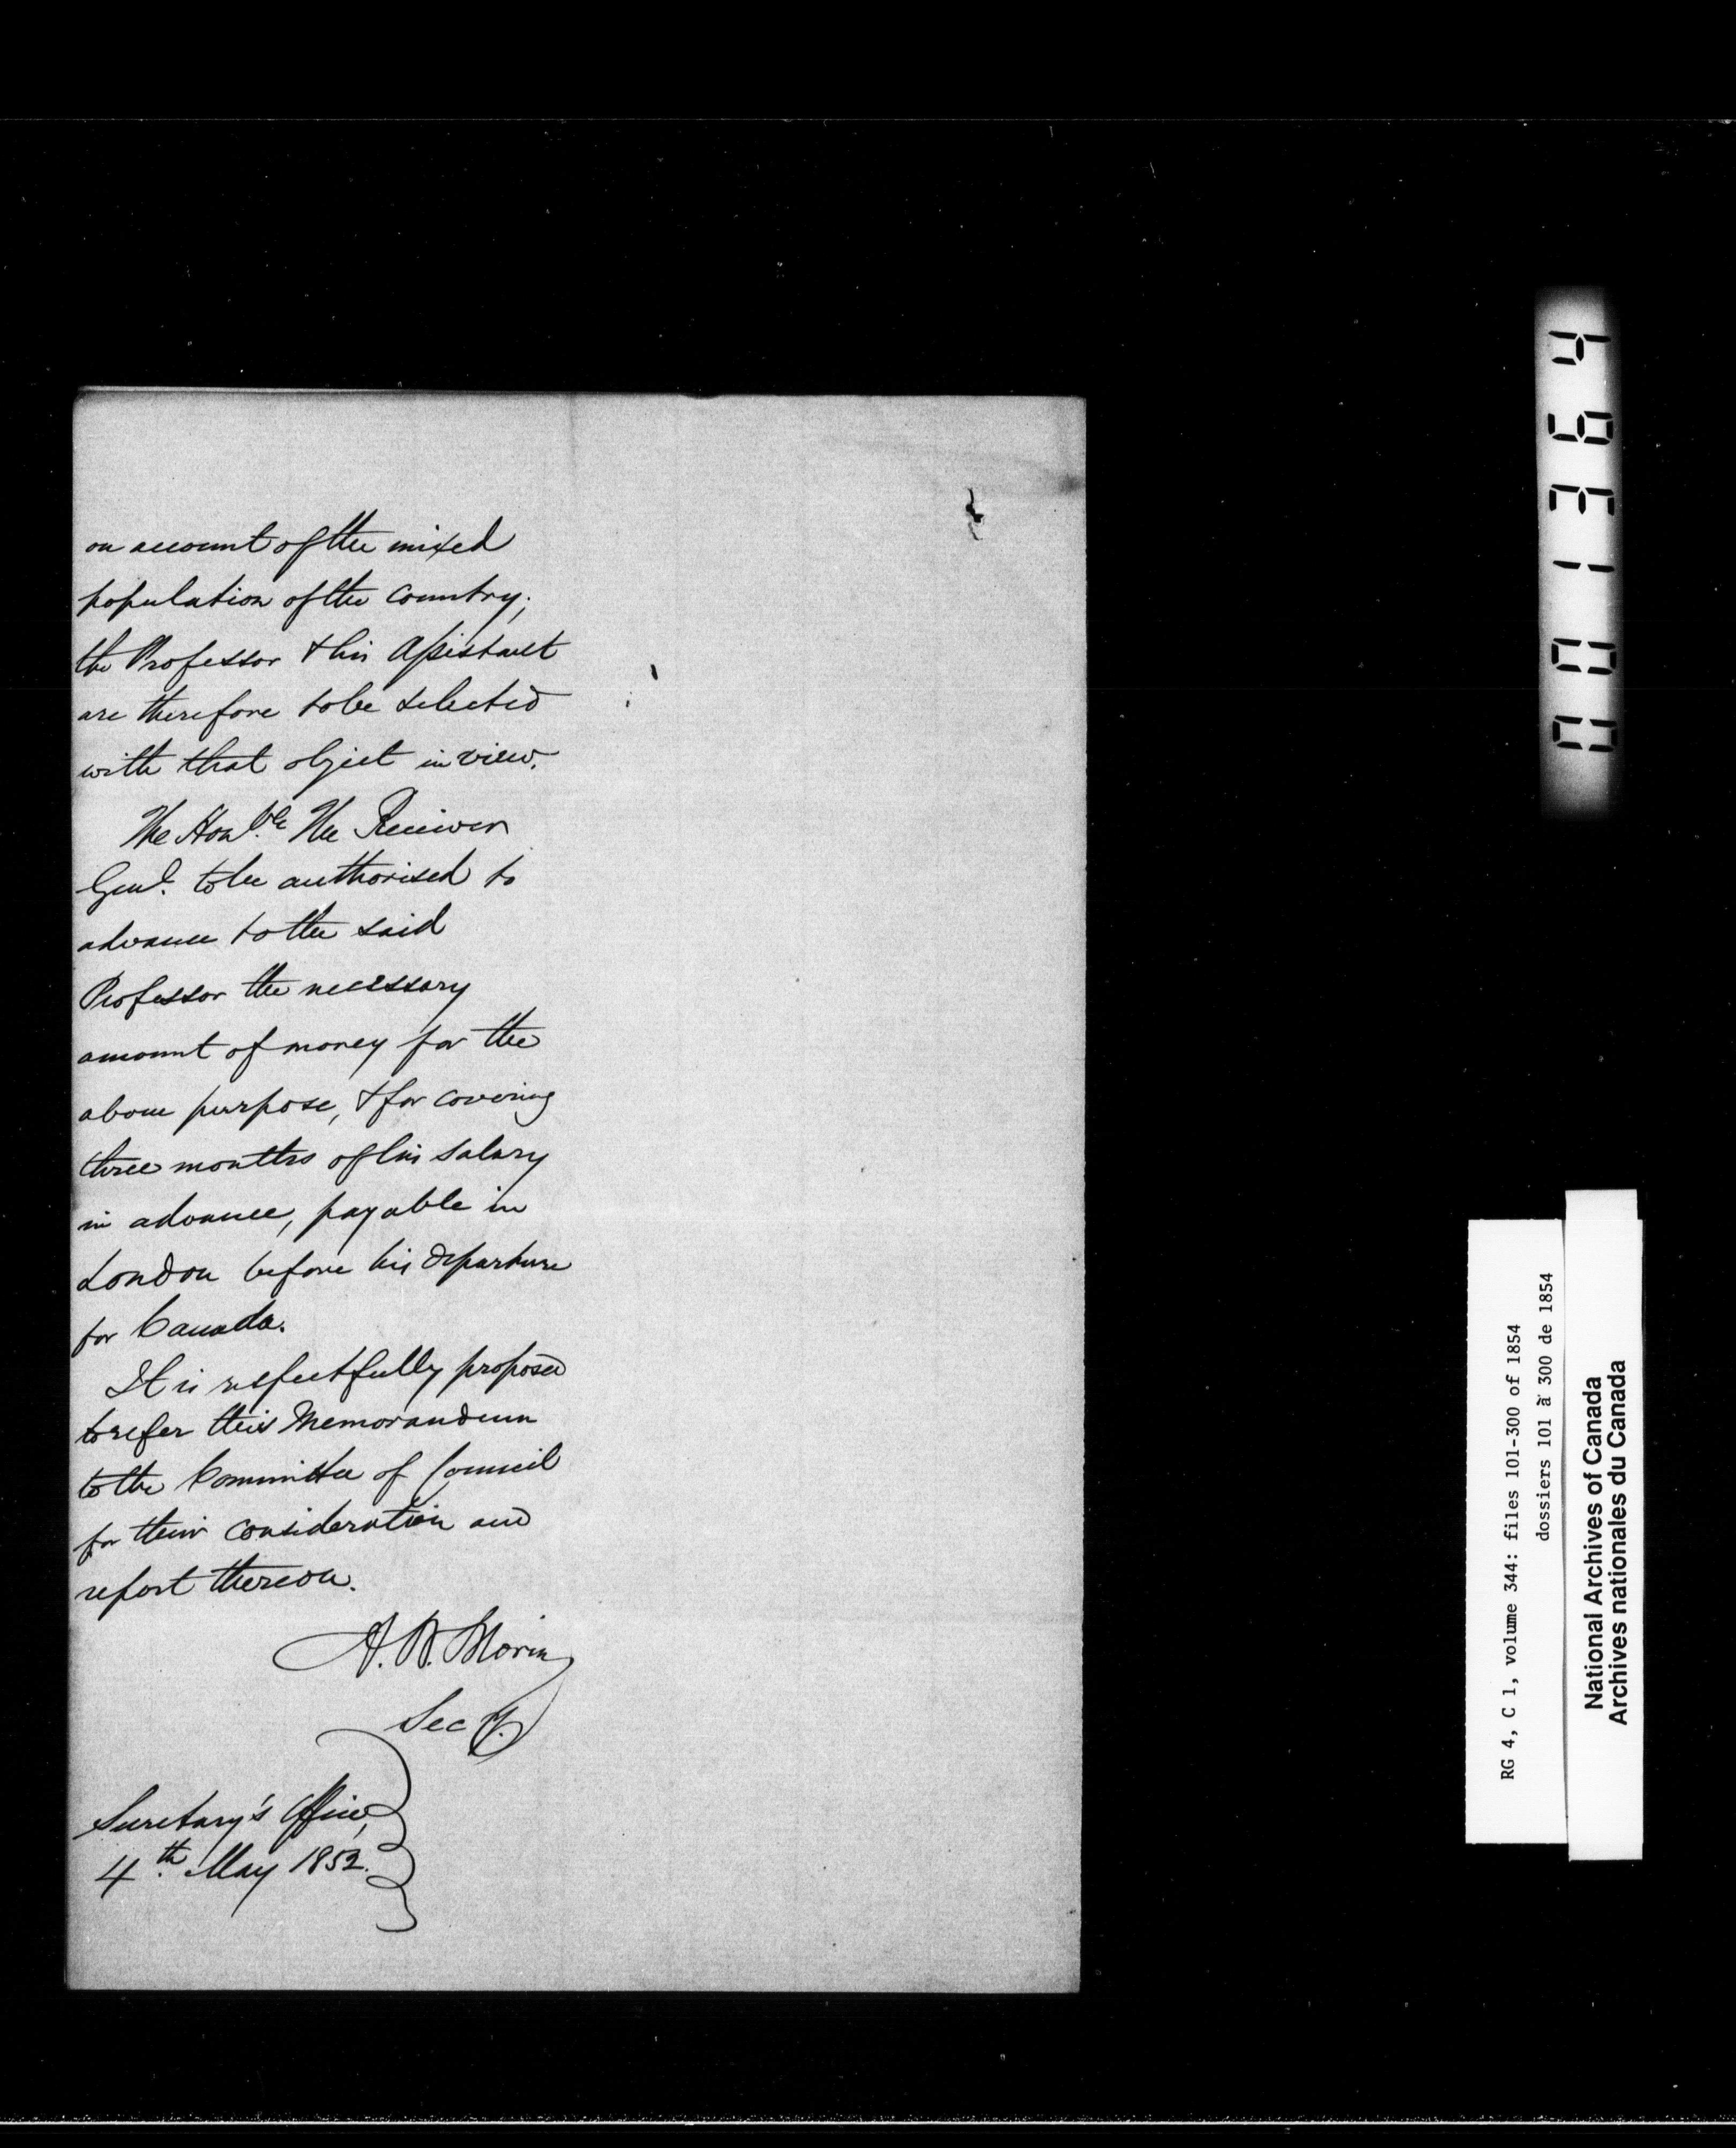 on account of the mixed
population of the country;
the Professor & his Assistant
are therefore to be selected
with that object in view.
The Honble. The Receiver
Genl. to be authorised to
advance to the said
Professor the necessary
amount of money for the
above purpose, & for covering
three months of his salary
in advance, payable in
London before his departure
for Canada.
It is respectfully proposed
to refer this Memorandum
to the Committee of Council
for their consideration and
report thereon.
A. N. Morin
Secy.
Secretary's Office,
4th. May 1852.
001364
RG 4, C 1, volume 344: files 101-300 of 1854
dossiers 101 à 300 de 1854
National Archives of Canada
Archives nationales du Canada